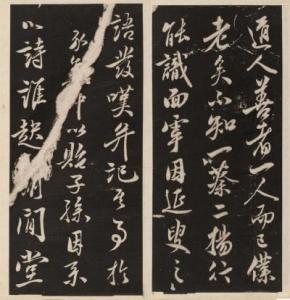 道人善者一人而已僕
老矣不知一蔡二楊行
能識面寧因延叟之
語發嘆并記其事於
以貽子孫因系
以詩誰趙閒堂